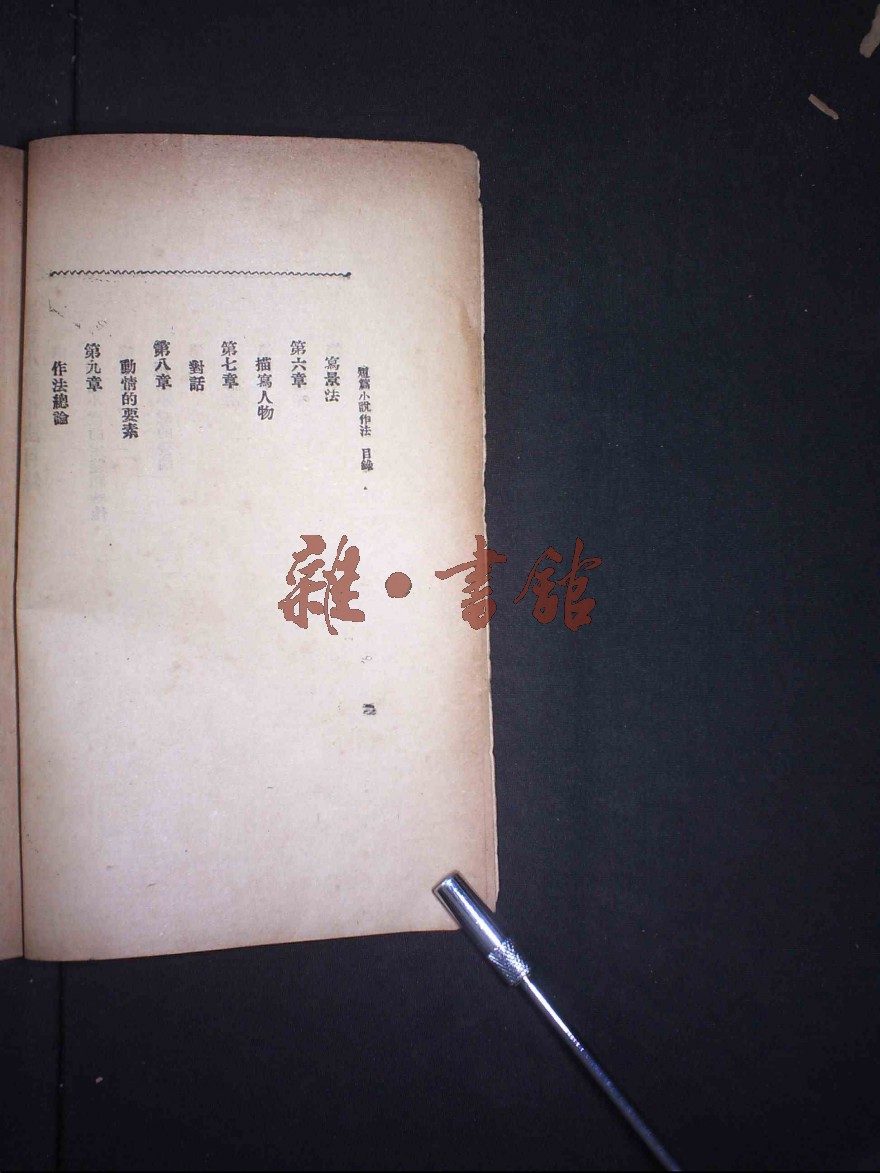 短篇小說作法 目錄
寫景法
第六章
描寫人物
第七章
對話
第八章
動情的要素
第九章
作法總論
雜·書館